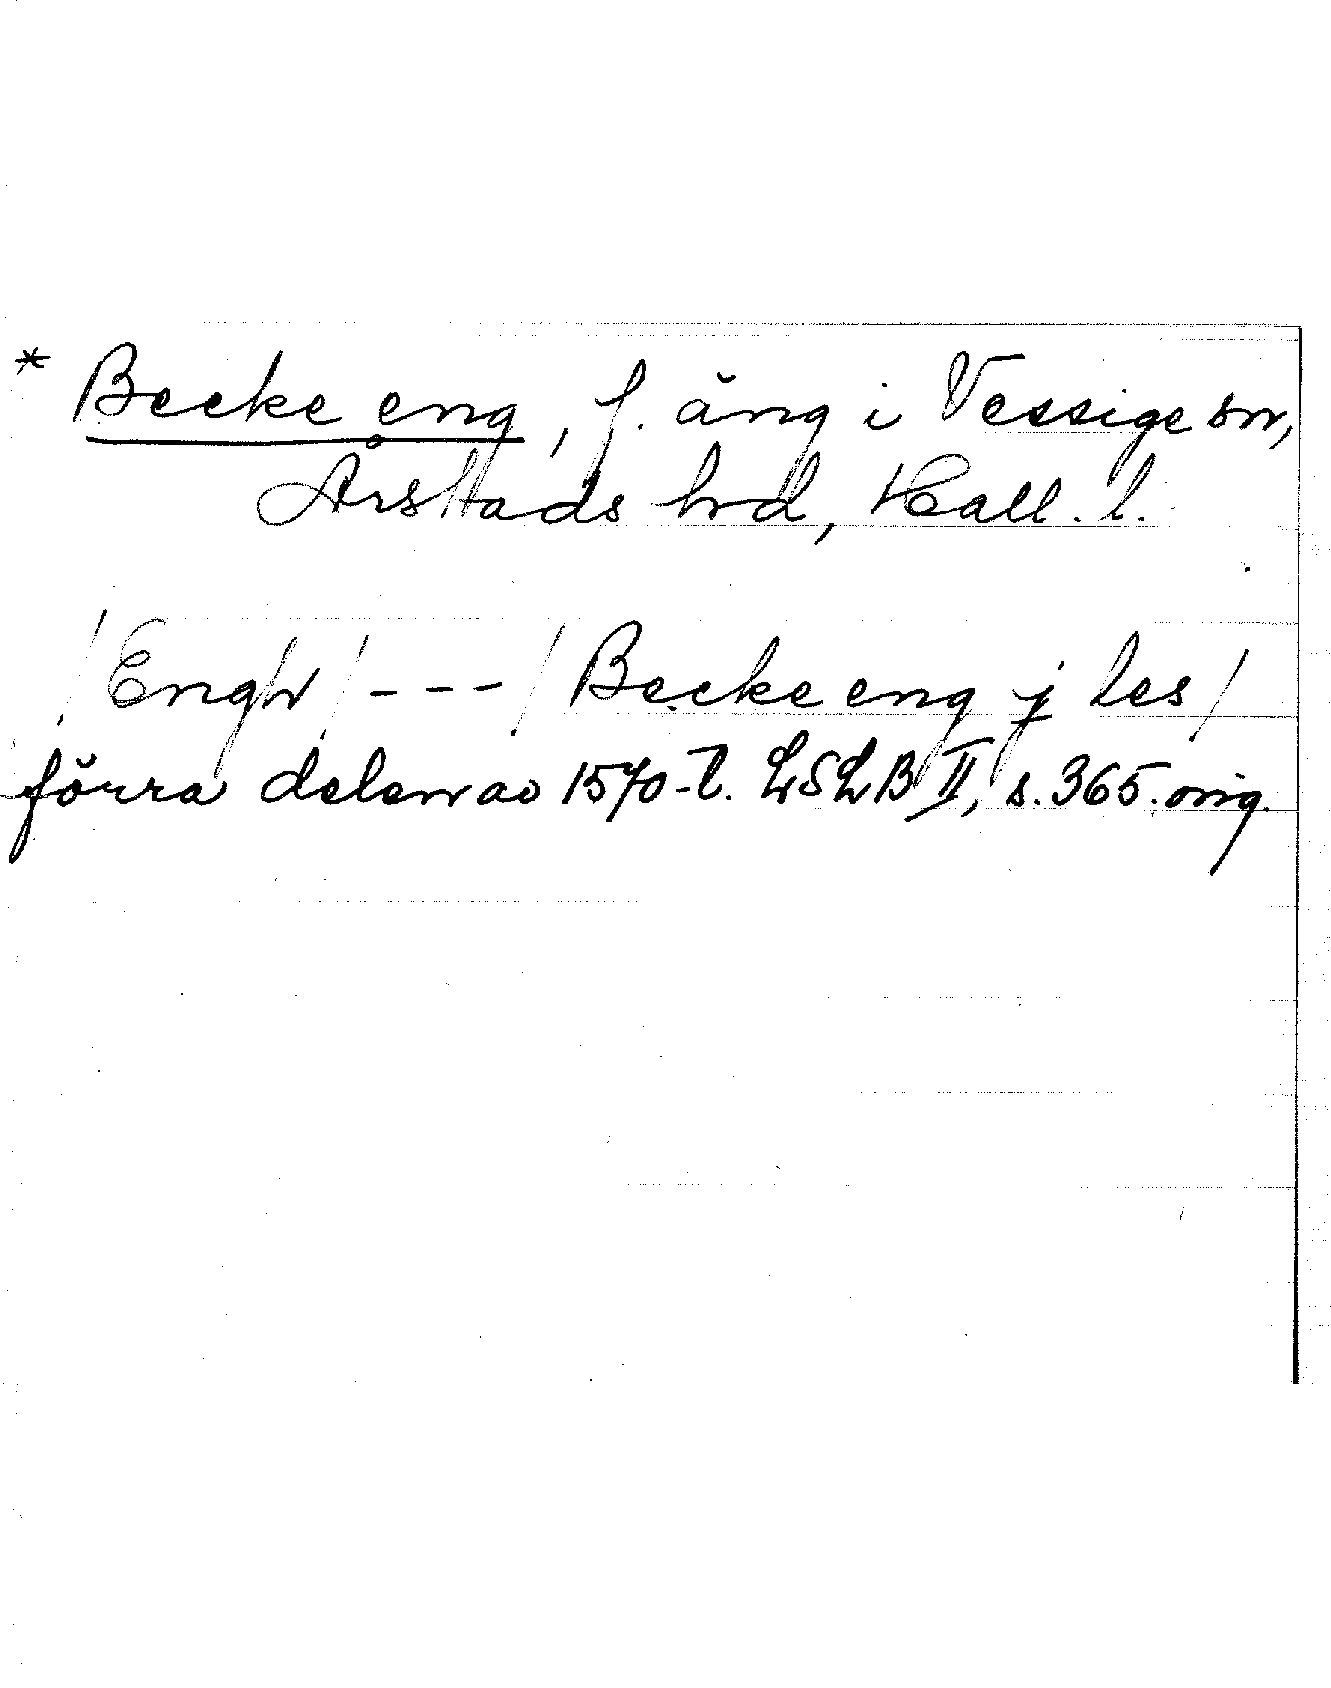 * Becke eng, f. äng i Vessige sn,
Årstads hd, Hall. l.
/Engh/ - - - / Becke eng j les/
förra delen av 1570-t. LSLB II, s. 365. orig.